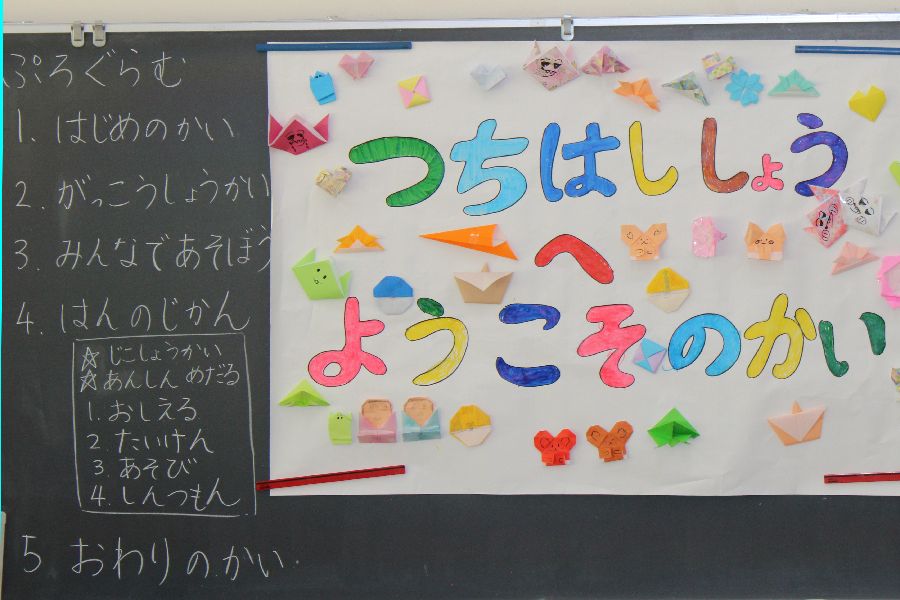 ぷろぐらむ
1. はじめのかい
2. がっこうしょうかい
3. みんなであそぼう
4. はんのじかん
☆ じこしょうかい
☆ あんしんめだる
1. おしえる
2. たいけん
3. あそび
4. しんつもん
5. おわりのかい
つちはししょう
へ
ようこそのかい